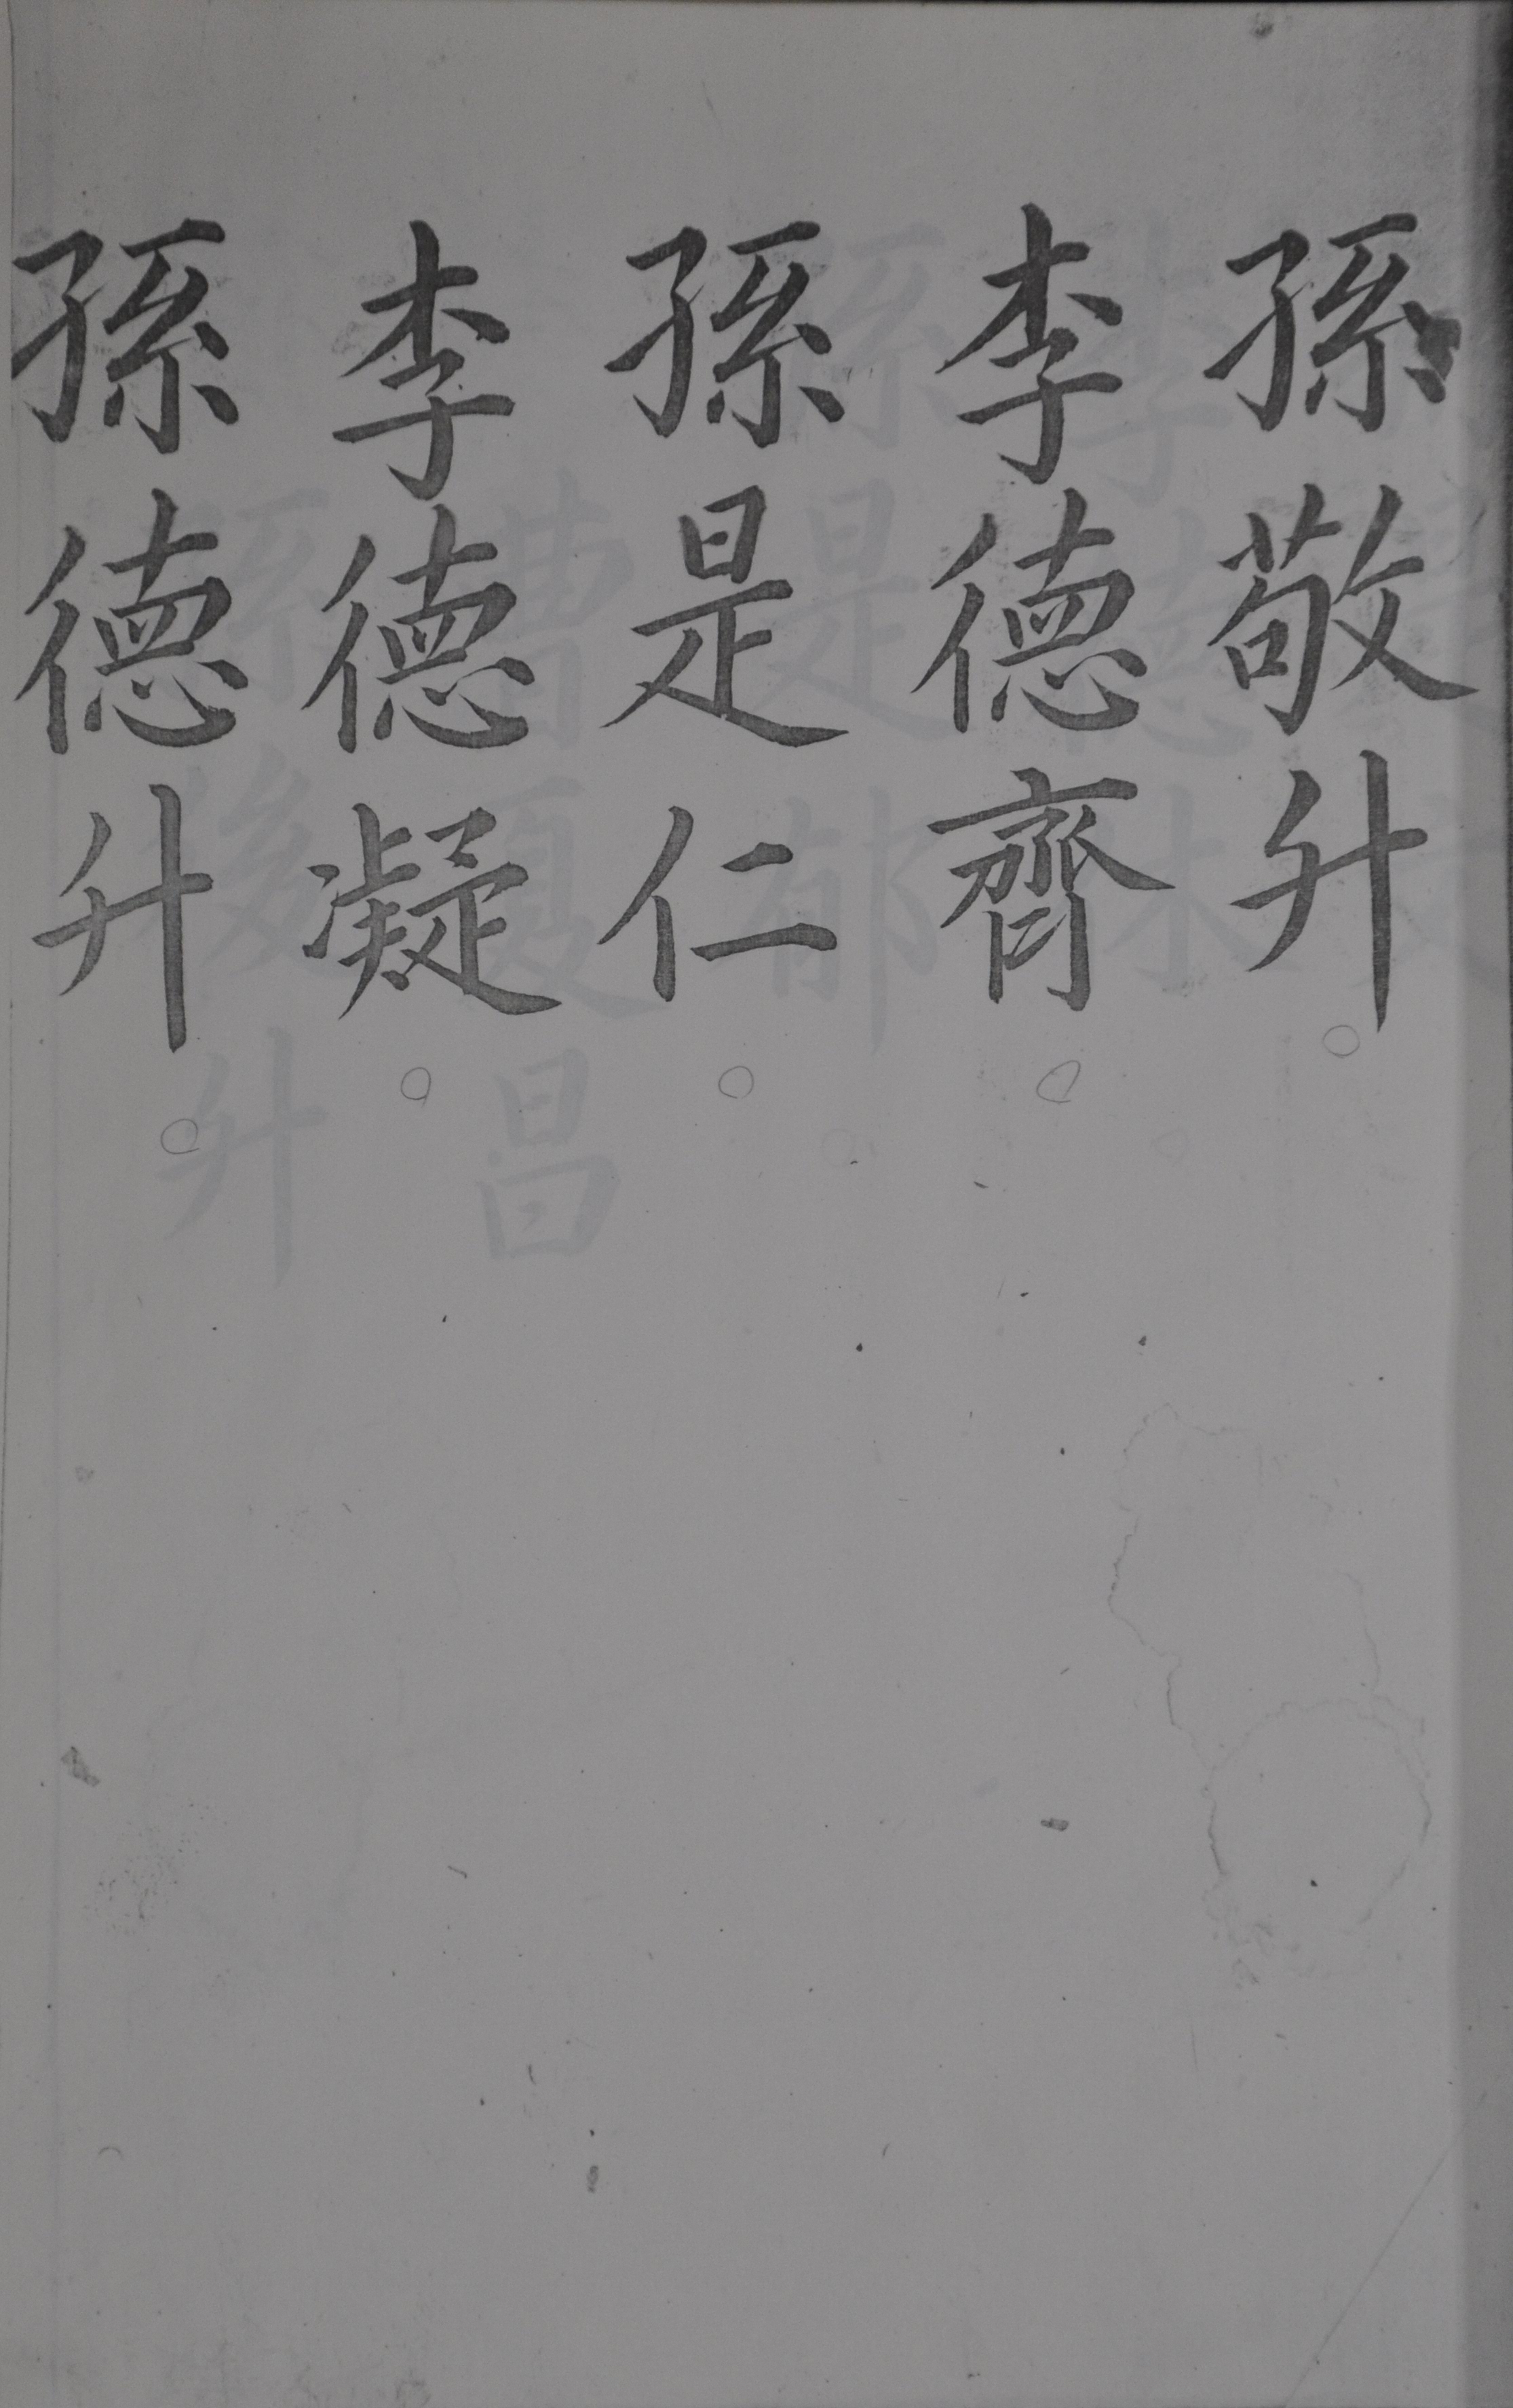 孫敬升
李德齊
孫是仁
李德凝
孫德升